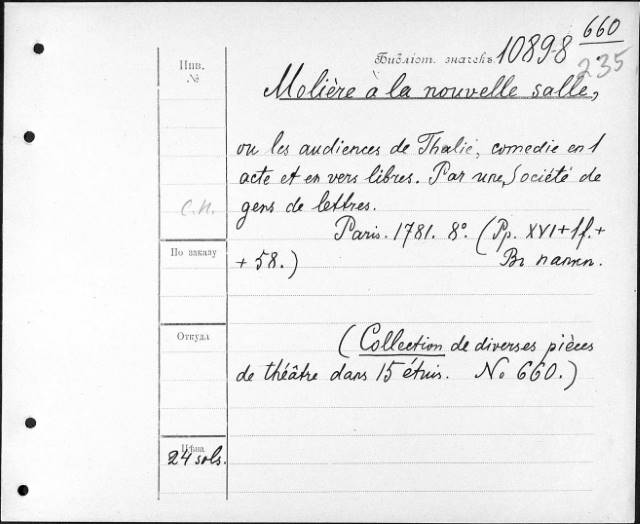 660
Библіот. значекъ 10898
235
Инв.
№
Molière à la nouvelle salle,
ou les audiences de Thalie, comedie en 1
acte et en vers libres. Par une Société de
С.П.
gens de lettres.
Paris. 1781. 8°. (Pp. XVI+1f.+
По заказу
+ 58.)
Въ папкѣ.
Откуда
(Collection de diverses pièces
de théâtre dans 15 étuis. No 660.)
Цѣна
24 sols.